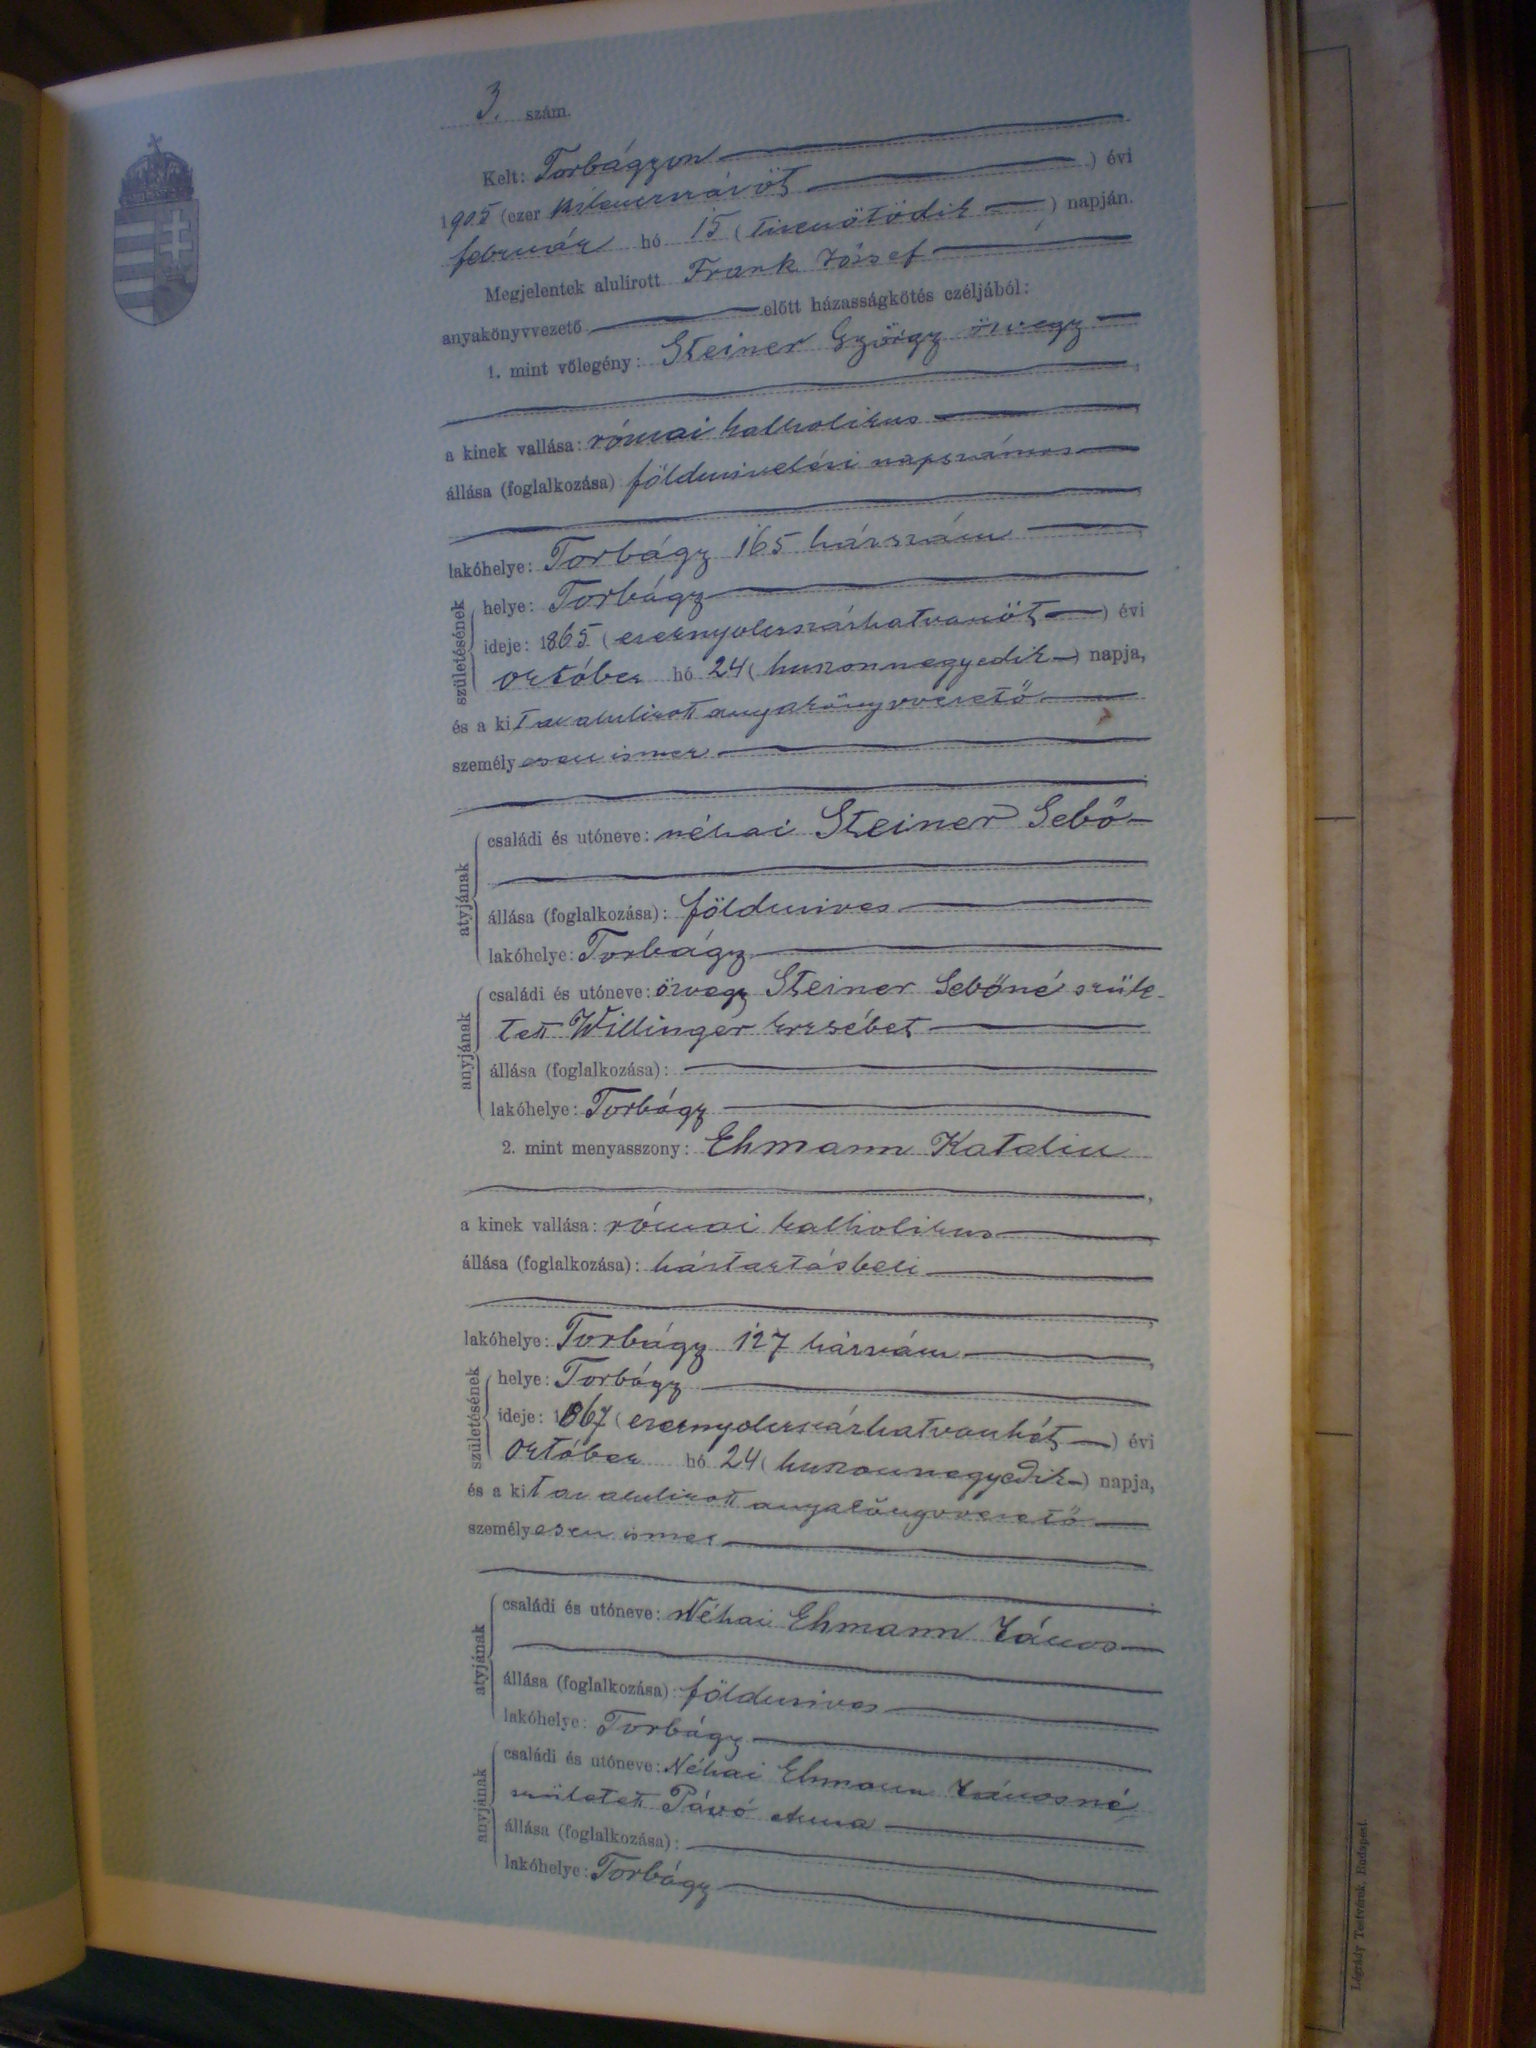 3. szám.
Kelt: Torbágyon
1905 (ezer kilenczszázöt) évi
február hó 15 (tizenötödik) napján.
Megjelentek alulirott Frank József
anyakönyvvezető előtt házasságkötés czéljából:
1. mint vőlegény: Steiner György özvegy
a kinek vallása: római katholikus
állása (foglalkozása) földmivelési napszámos
lakóhelye: Torbágy 165 házszám
születésének
helye: Torbágy
ideje: 1865 (ezernyolczszázhatvanöt) évi
október hó 24 (huszonnegyedik) napja,
és a kit az alulirott anyakönyvvezető
személyesen ismer
atyjának
családi és utóneve: néhai Steiner Sebő
állása (foglalkozása): földmives
lakóhelye: Torbágy
anyjának
családi és utóneve: özvegy Steiner Sebőné szüle-
tett Willinger Erzsébet
állása (foglalkozása):
lakóhelye: Torbágy
2. mint menyasszony: Ehmann Katalin
a kinek vallása: római katholikus
állása (foglalkozása): háztartásbeli
lakóhelye: Torbágy 127 házszám
születésének
helye: Torbágy
ideje: 1867 (ezernyolczszázhatvanhét) évi
október hó 24 (huszonnegyedik) napja,
és a kit az alulirott anyakönyvvezető
személyesen ismer
atyjának
családi és utóneve: Néhai Ehmann János
állása (foglalkozása): földmives
lakóhelye: Torbágy
anyjának
családi és utóneve: Néhai Ehmann Jánosné
született Pávó Anna
állása (foglalkozása):
lakóhelye: Torbágy
Légrády Testvérek, Budapest.